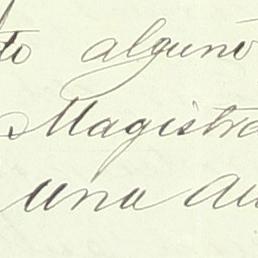 to alguno
Magistra
una au